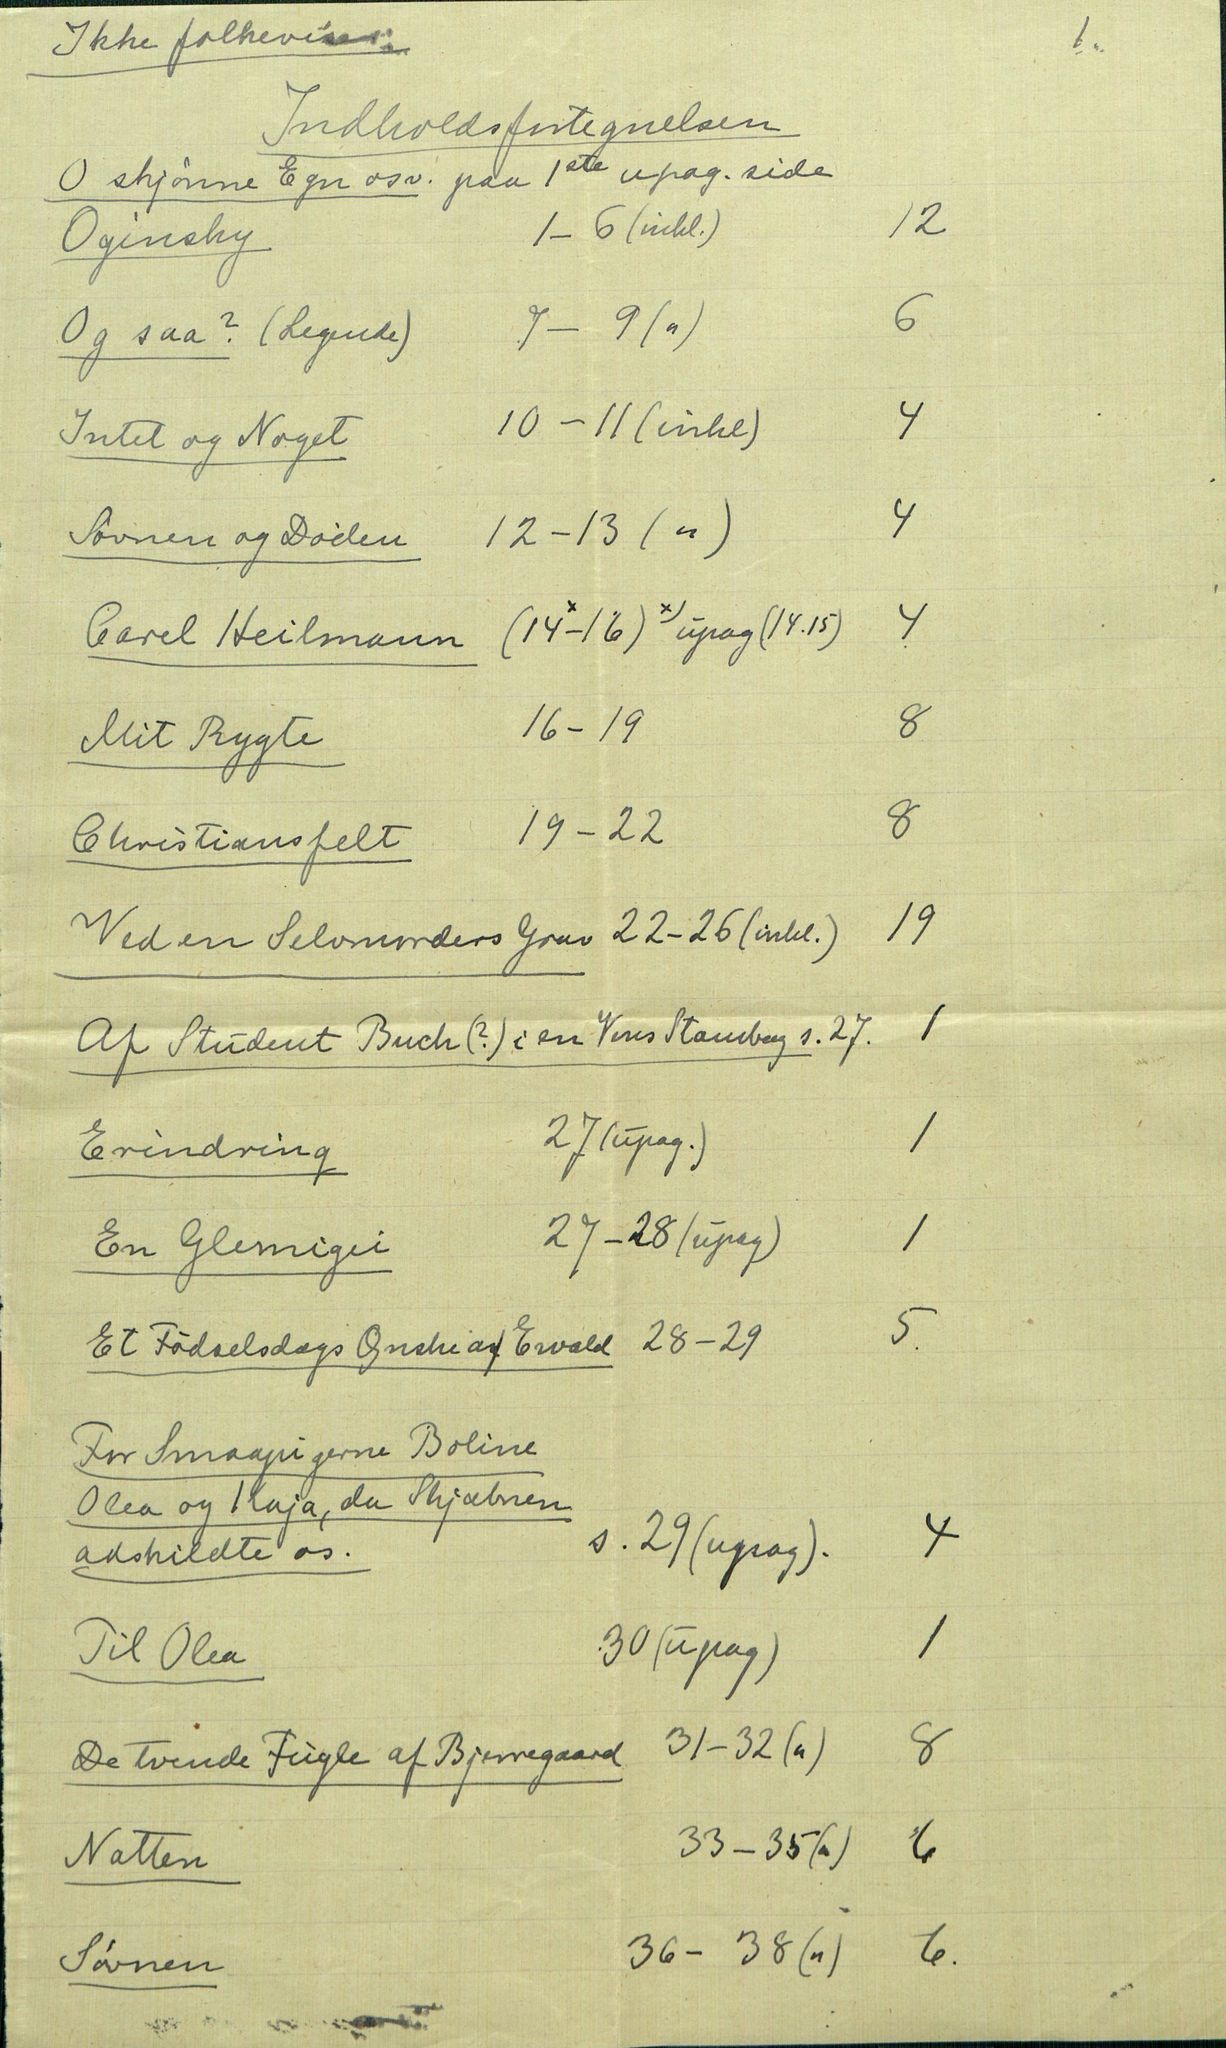 Ikke folkeviser
1.
Indholdsfortegnelsen
O skjønne Egn osv. paa 1ste upag. side
Oginsky 1-6 (inkl.) 12
Og saa? (Legende) 7-9 (") 6
Intet og Noget 10-11 (inkl) 4
Søvnen og Døden 12-13 (") 4
Carel Heilmann (14x-16) x) upag (14.15) 4
Mit Rygte 16-19 8
Christiansfelt 19-22 8
Ved en Selvmorders Grav 22-26 (inkl.) 19
Af Student Buch (?) i en Vens Stambog s. 27. 1
Erindring 27 (upag.) 1
En Glemigei 27-28 (upag) 1
Et Fødselsdags Ønske af Ewald 28-29 5.
For Smaapigerne Boline
Olea og Kaja, da Skjæbnen
adskildte os. s. 29 (upag). 4
Til Olea 30 (upag) 1
De tvende Fugle af Bjerregaard 31-32 (") 8
Natten 33-35 (") 6
Søvnen 36-38 (") 6.